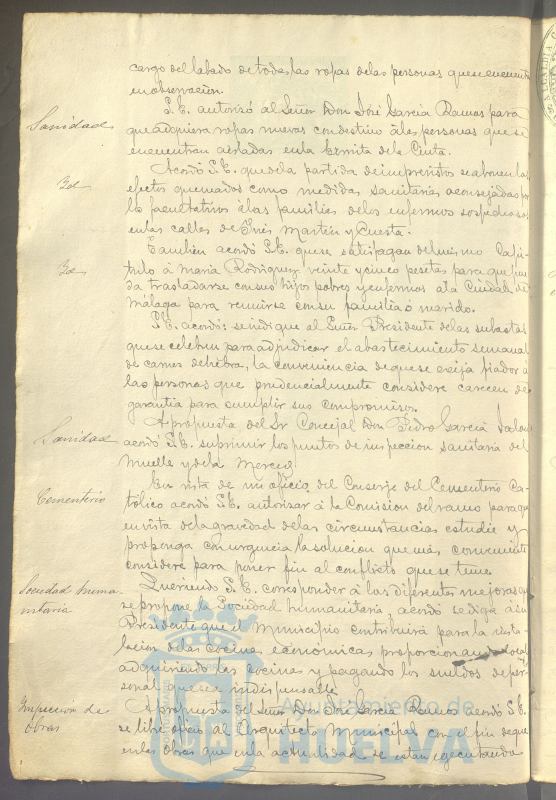 cargo del labado de todas las ropas delas personas que se encuentren
en observacion.
Sanidad
S.E. autorizó al Señor Don José García Ramos para
que adquiera ropas nuevas con destino á las personas que se
encuentran aisladas en la Ermita de la Cinta.
Id
Acordó S.E. que de la partida de imprevistos se abonen los
efectos quemados como medidas sanitarias aconsejadas por
los facultativos á las familias delos enfermos sospechosos
en las calles de Inés Martín y Cuesta.
Id
Tambien acordó S.E. que se satisfagan del mismo Capi-
tulo á María Rodriguez veinte y cinco pesetas para que pue
da trasladarse con sus hijos pobres y enfermos á la Ciudad de
Málaga para reunirse con su familia ó marido.
S.E. acordó: se indique al Señor Presidente delas subastas
que se celebren para adjudicar el abastecimiento semanal
de carnes de hebra, la conveniencia de que se exija fiador á
las personas que prudencialmente considere carecen de
garantia para cumplir sus compromisos.
Sanidad
A propuesta del Sr Concejal Don Pedro García
acordó S.E. suprimir los puntos de inspeccion sanitaria del
Muelle y dela Merced
Cementerio
En vista de un oficio del Conserje del Cementerio Ca-
tólico acordó S.E. autorizar á la Comision del ramo para que
en vista de la gravedad delas circunstancias estudie y
proponga con urgencia la solucion que mas conveniente
considere para poner fin al conflicto que se teme
Sociedad huma-
nitaria
Queriendo S.E. corresponder á las diferentes mejoras que
se propone la Sociedad humanitaria, acordó se diga á su
Presidente que el Municipio contribuirá para la insta-
lacion delas cocinas economicas proporcionando local
adquiriendo las cocinas y pagando los sueldos de per-
sonal que sea indispensable
Inspección de
Obras
A propuesta del Señor Don José García Ramos acordó S.E.
se libre oficio al Arquitecto Municipal con el fin de que
en las obras que en la actualidad se estan ejecutando
Ayuntamiento de
HUELVA
ALCALDIA